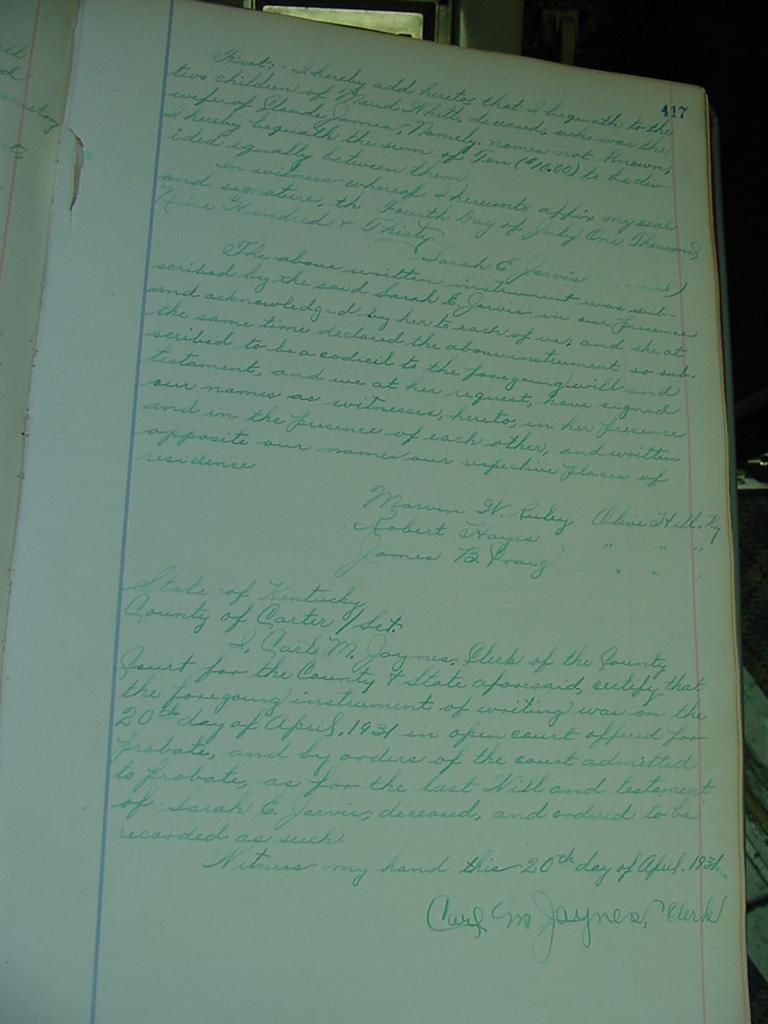 417
First:- I hereby add hereto; that I bequath to the
two children of Maud Whett, deceased, who was the
wife of Claude James, Namely, names not known,
I hereby bequath the sum of Ten ($10.00) to be div-
ided equally between them.
In witness whereof I hereunto affix my seal
and signature, th Fourth Day of July One Thousand
Nine Hundred & Thirty.
Sarah E. Jarvis
The above written instrument was sub-
scribed by the said Sarah E. Jarvis in our presence
and acknowledged by her to each of us; and she at
the same time declared the above instrument so sub-
scribed to be a codicil to the foregoing will and
testament, and we at her request, have signed
our names as witnesses, hereto, in her presence
and in the presence of each other, and written
opposite our names our respective places of
residence
Marvin W. Ruley Olive Hill, Ky
Robert Hayes " " "
James B. Craig " " "
State of Kentucky
County of Carter / Sct.
I, Carl M. Jaynes, Clerk of the County
Court for the County & State aforesaid, certify that
the foregoing instrument of writing was on the
20th day of April, 1931 in open court offered for
probate, and by orders of the court admitted
to probate, as for the last Will and testament
of Sarah E. Jarvis, deceased, and ordered to be
recorded as such.
Witness my hand this 20th day of April, 1931.
Carl M Jaynes, Clerk